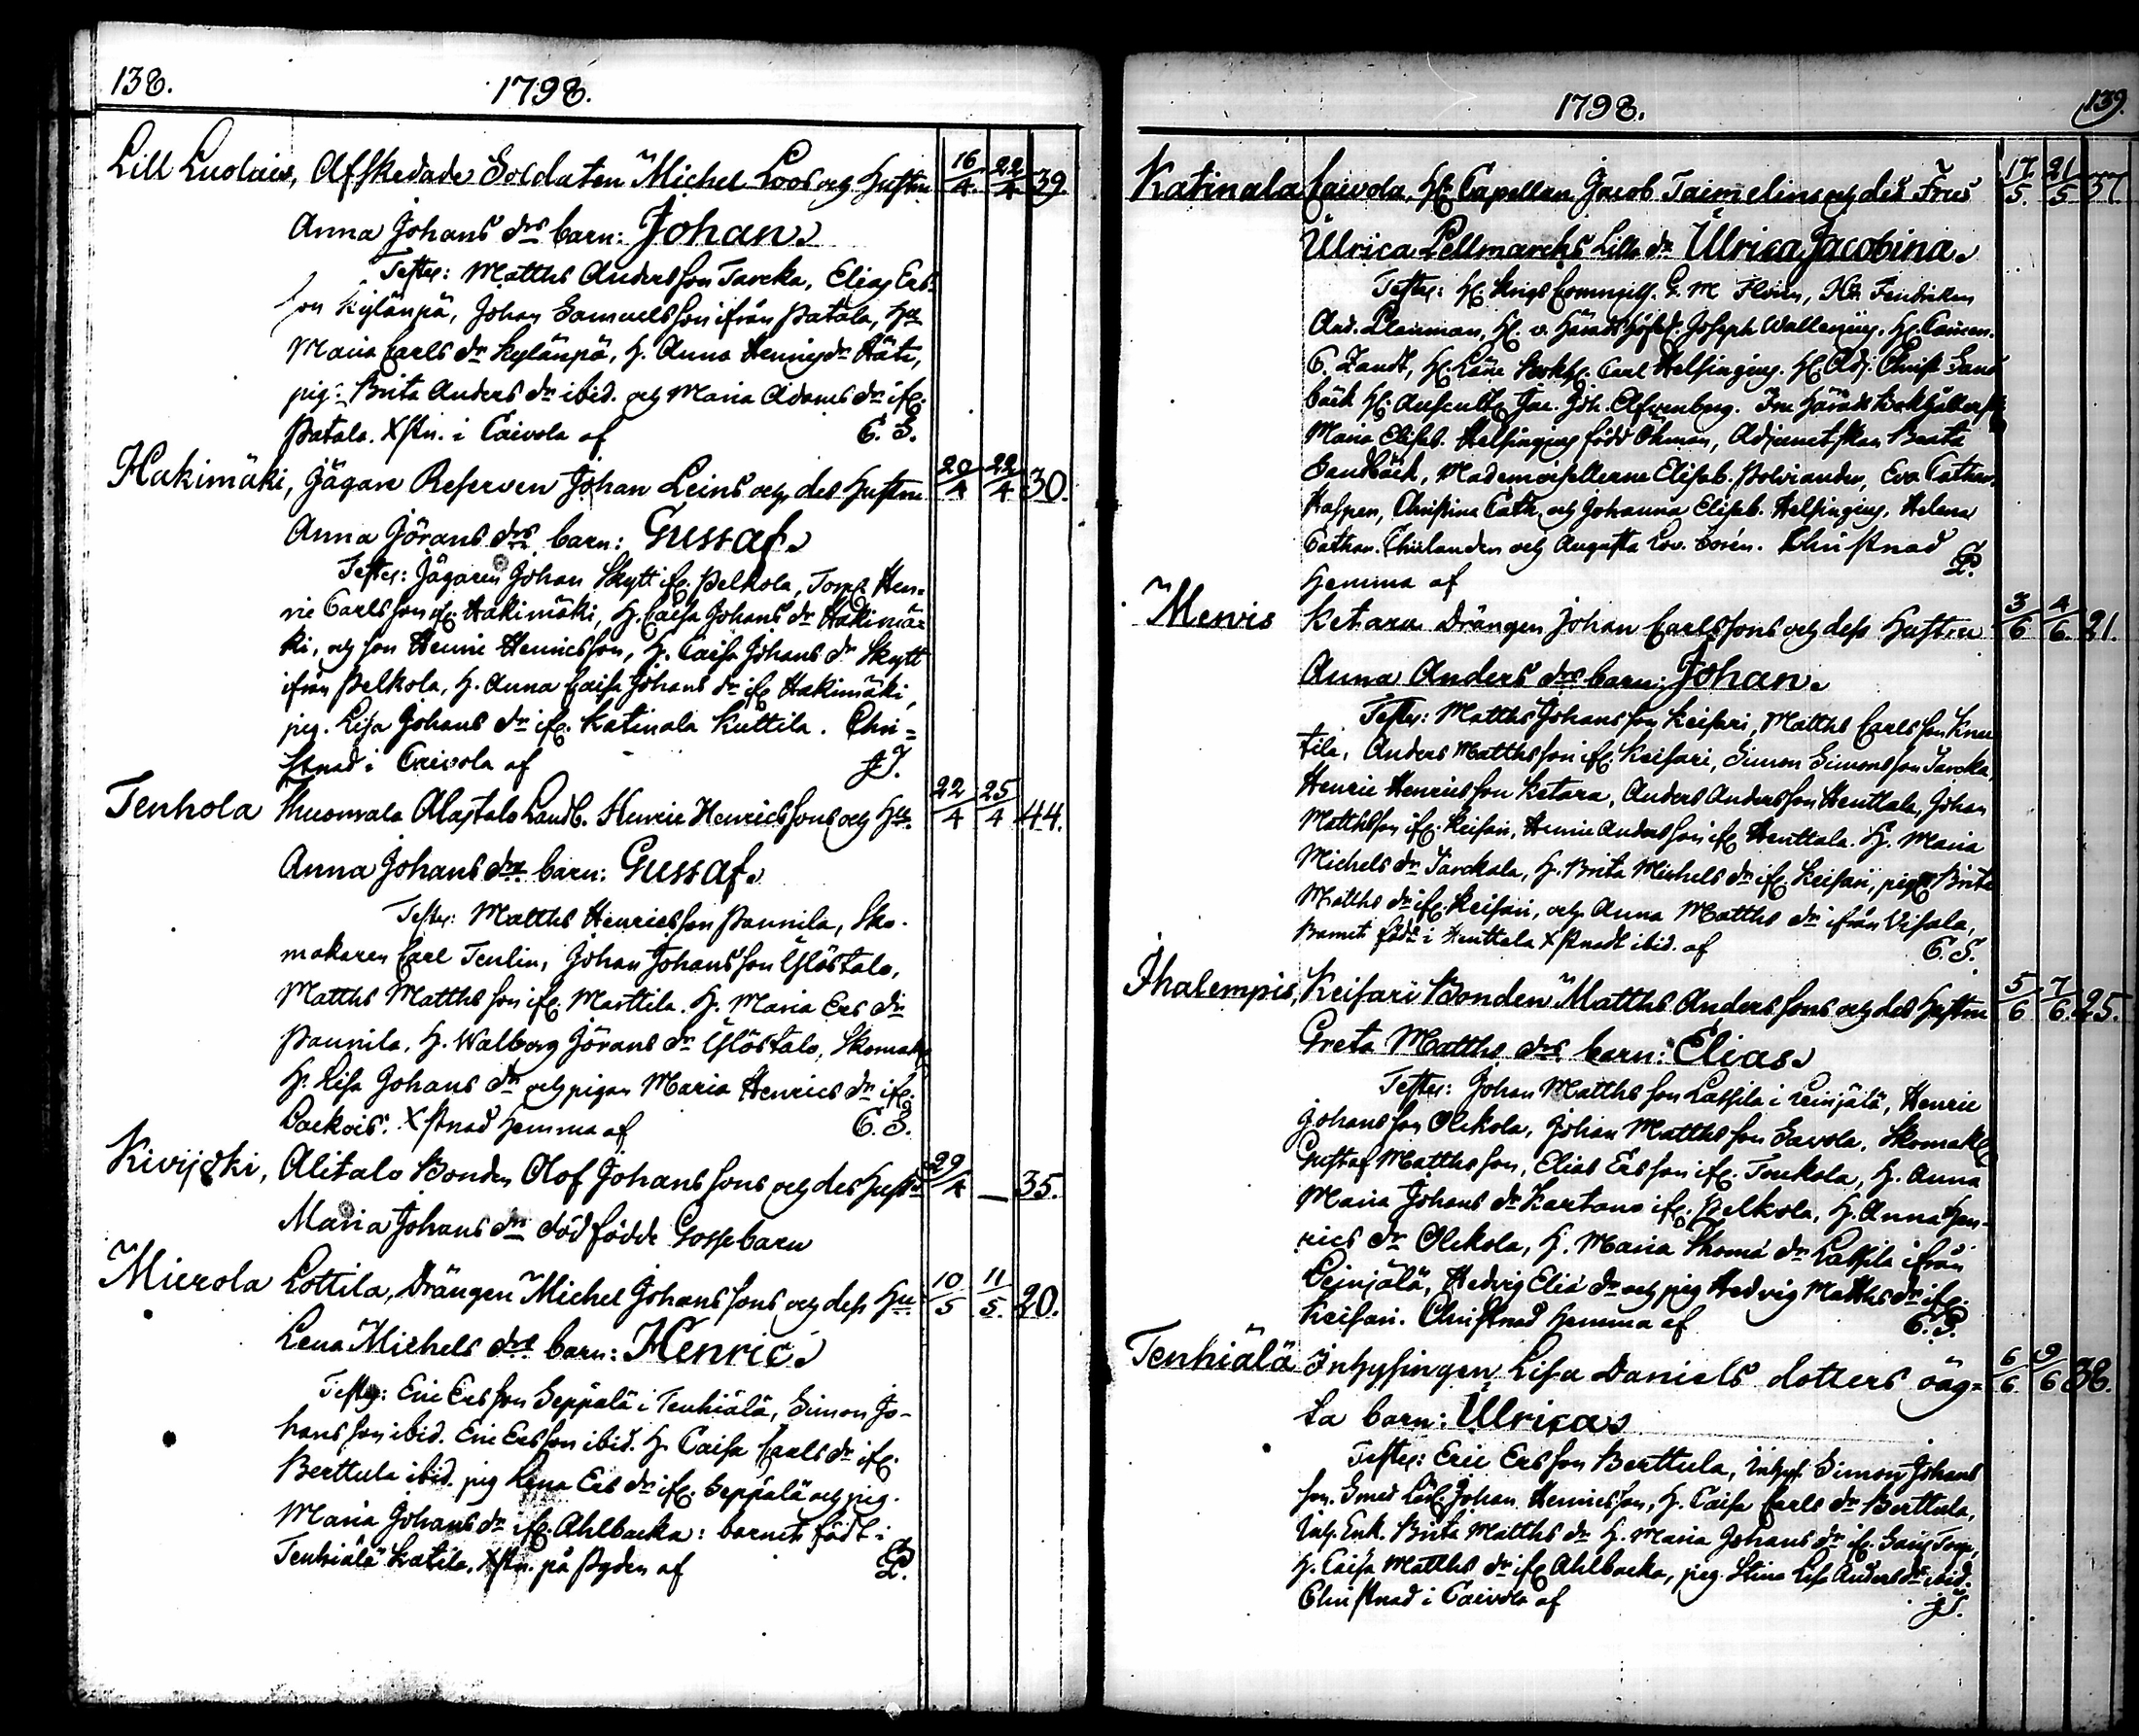 138.
1798.
Lill Luolais, Afskedade Soldaten Michel Loos och Hustru 16/4. 22/4 39
Anna Johans drs barn: Johan.
Testes: Matths Andersson Jarcka, Elias Ers-
son Kylänpä, Johan Samuelsson ifrån Patala, Hu
Maria Carls dr Kylänpä, H. Anna Henrigs dr Häti,
pig: Brita Anders dr ibid. och Maria Adams dr ifr.
Patala. Xstn. i Caivola af E. S.
Hakimäki, Jägare Reserven Johan Leins och des hustru 20/4 22/4 30.
Anna Jörans drs barn: Gustaf.
Testes: Jägaren Johan Skytt ifr. Pelkola, Torp. Hen-
ric Carlsson ifr. Hakimäki, H. Caisa Johans dr Hakimä-
ki, och son Henric Henricsson, H. Caisa Johans dr Skytt
ifrån Pelkola, H. Anna Caisa Johans dr ifr Hakimäki,
pig. Lisa Johans dr ifr. Katinala Kuttila. Chri-
stnad i Caivola af JT.
Tenhola Thuomala Alastalo Landb. Henric Henricssons och Hu. 22/4 25/4 44.
Anna Johans drs barn: Gustaf.
Testes: Matths Henricsson Pannila, Sko-
makaren Carl Tenlin, Johan Johansson Ylöstalo,
Matths Matthsson ifr. Marttila. H. Maria Ers dr
Pannila, H. Walborg Jörans dr Ylöstalo, Skomak.
H. Lisa Johans dr och pigan Maria Henrics dr ifr.
Xstnad hemma af E. S.
Kivijoki, Alitalo Bonden Olof Johanssons och des Hust. 29/4 — 35.
Maria Johans drs död födde Gossebarn
Mierola Lottila, Drängen Michel Johanssons och dess Hu 10/5 11/5. 20.
Lena Michels drs barn: Henric.
Testes: Eric Ersson Seppälä i Tenhiälä, Simon Jo-
hansson ibid. Eric Ersson ibid. H. Caisa Carls dr ifr.
Berttula ibid. pig Lena Ers dr ifr. Seppälä och pig.
Maria Johans dr ifr. Ahlbacka: barnet födt i
Tenhiälä Katila. Xstn. på Byden af
1798.
139.
Katinala Caivola, Hr Capellan Jacob Taimelins och des Frus 17/5. 21/5 37.
Ulrica Pellmarchs Lilla dr Ulrica Jacobina.
Testes: Hr Krigs Commiss. G. M Floin, Hr Fendriken
And. Planman, Hr v. Häradshöfd. Joseph Wallenius. Hr
Zandt, Hr Läns Carl Helsingius. Hr Adj. Christ Sand-
bäck Hr Auscult Jac. Joh. Alfvenberg. Fru Häradsbokhållerskan
Maria Elisab. Helsingius född Öhman, Adjunctskan Beata
Sandbäck, Mademoisellerne Elisab. Polviander, Eva Cathar.
Christina Cath. och Johanna Elisab. Helsingius, Helena
Cathar. och Augusta Lov. Christnad
hemma af
Menis Ketara Drängen Johan Carlssons och dess Hustru 3/6 4/6. 21.
Anna Anders drs barn: Johan.
Testes: Matths Johansson Keisari, Matths Carlsson Knu
tila, Anders Matthsson ifr. Keisari, Simon Simonsson Jarcka,
Henric Henricsson Ketara, Anders Andersson Henttala, Johan
Matthsson ifr. Keisari, Henric Andersson ifr Henttala. H. Maria
Michels dr Jarckala, H. Brita Michels dr ifr Keisari, pig. Brita
Matths dr ifr. Keisari, och Anna Matths dr ifrån Visala,
Barnet födt i Henttala Xstnadt ibid. af E. S.
Ihalempis, Keisari Bonden Matths Anderssons och des Hustru 5/6 7/6. 25.
Greta Matths drs barn: Elias.
Testes: Johan Matthsson Lassila i Leinjälä, Henric
Johansson Olckola, Johan Matthsson Savola, Skomak.
Gustaf Matthsson, Elias Ersson ifr. Tonkola, H. Anna
Maria Johans dr Kartano ifr. Pelkola, H. Anna Hen-
rics dr Olckola, H. Maria Thoma dr Lassila ifrån
Leinjälä, Hedvig Elia dr och pig Hedvig Matths dr ifr.
Keisari. Christnad hemma af E. S.
Tenhiälä Inhysingen Lisa Daniels dotters oäg- 6/6 9/6 38.
ta barn: Ulrica.
Testes: Eric Ersson Berttula, Inhys. Simon Johans
son. Smed Lärl. Johan Henricsson, H. Caisa Carls dr Berttula,
Inh. Enk. Brita Matths dr H. Maria Johans dr ifr.
H. Caisa Matths dr ifr Ahlbacka, pig. Stina Lisa Anders dr ibid.
Christnad i Caivola af JT.